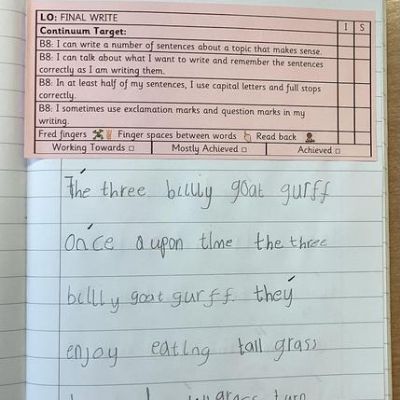 LO: FINAL WRITE
I S
Continuum Target:
B8: I can write a number of sentences about a topic that makes sense.
B8: I can talk about what I want to write and remember the sentences
correctly as I am writing them.
B8: In at least half of my sentences, I use capital letters and full stops
correctly.
B8: I sometimes use exclamation marks and question marks in my
writing.
Fred fingers Finger spaces between words Read back
Working Towards □ Mostly Achieved □ Achieved □
The three billly goat gurff
Once a upon time the three
billly goat gurff. they
enjoy eating tall grass
grass turn